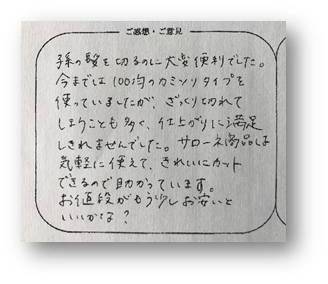 ご感想・ご意見
孫の髪を切るのに大変便利でした。
今までは100均のカミソリタイプを
使っていましたが、ざっくり切れて
しまうことも多く、仕上がりに満足
しきれませんでした。サローネ商品は
気軽に使えて、きれいにカット
できるので助かっています。
お値段がもう少しお安いと
いいかな?